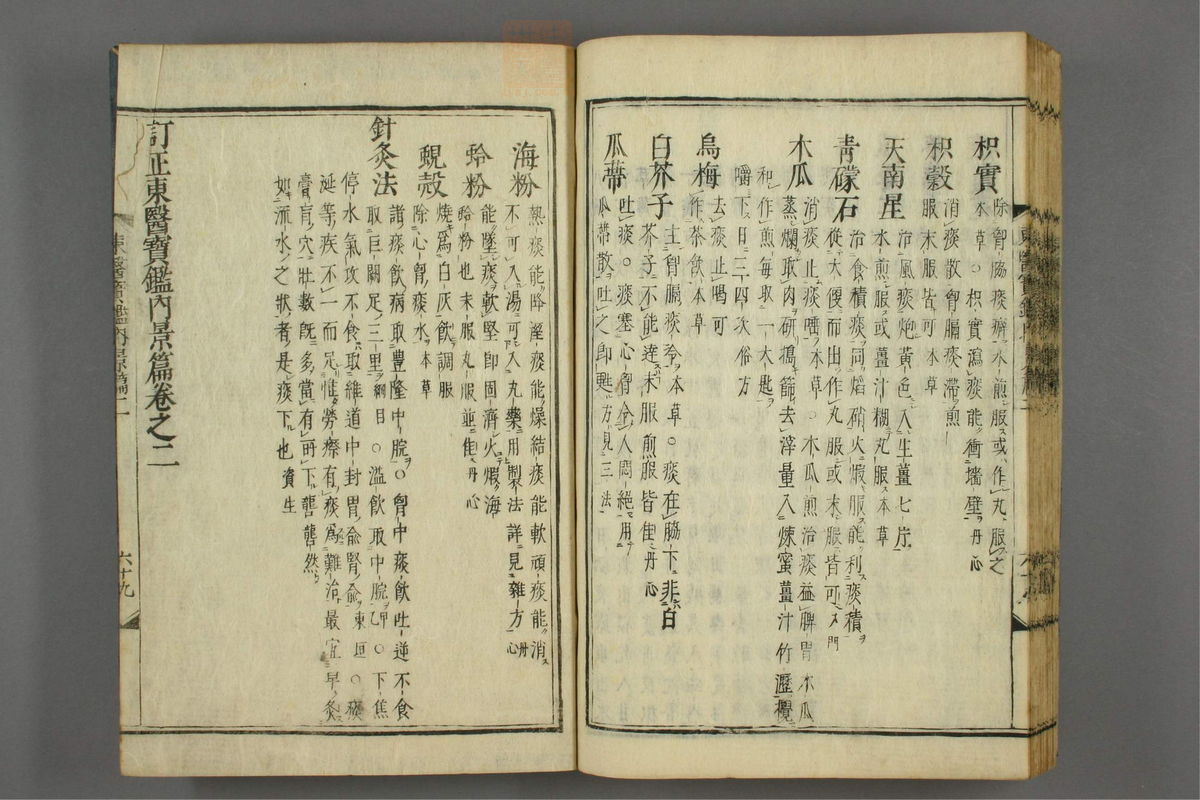 枳實 除胷脇痰癖水煎服或作丸服之
本草○枳實瀉痰能衝墻壁丹心
枳殼 消痰散胷膈痰滯煎
服末服皆可本草
天南星 治風痰炮黃色入生薑七片
水煎服或薑汁糊丸服本草
靑礞石 治食積痰同焰硝火煆服能利痰積
從大便而出作丸服或末服皆可入門
木瓜 消痰止痰唾本草○木瓜煎治痰益脾胃木瓜
蒸爛取肉硏搗篩去滓量入煉蜜薑汁竹瀝攪
和作煎每取一大匙
嚼下日三四次俗方
烏梅 去痰止喝可
作茶飮本草
白芥子 主胷膈痰冷本草○痰在脇下非白
芥子不能達末服煎服皆佳丹心
瓜蔕 吐痰○痰塞心胷令人悶絶用
瓜蔕散吐之卽甦方見三法
海粉 熱痰能降濕痰能燥結痰能軟頑痰能消
不可入湯可入丸藥用製法詳見雜方丹心
蛤粉 能墜痰軟堅卽固濟火煆海
蛤粉也末服丸服並佳丹心
蜆殼 燒爲白灰飮調服
除心胷痰水本草
針灸法 諸痰飮病取豊隆中脘○胷中痰飮吐逆不食
取巨闕足三里綱目○溢飮取中脘甲乙○下焦
停水氣攻不食取維道中封胃兪腎兪東垣○痰
延等疾不一而足惟勞瘵有痰爲難治最宜早灸
膏肓穴壯數旣多當有所下礱礱然
如流水之狀者是痰下也資生
訂正東醫寶鑑內景篇卷之二
東醫寶鑑內景篇二
六十九